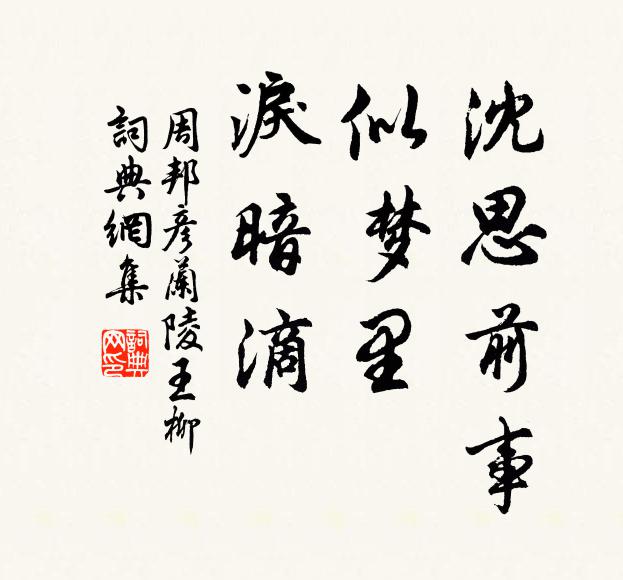 沈思前事
似梦里
淚暗滴
周邦彦蘭陵王柳
詞典網集
詞典网印